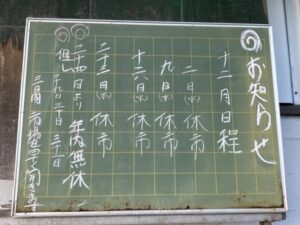 お知らせ
十二月日程
二日(水)休市
九日(水)休市
十六日(水)休市
二十三日(水)休市
二十四日より年内無休
但し二十九日三十日三十一日
三日間市場四時開き